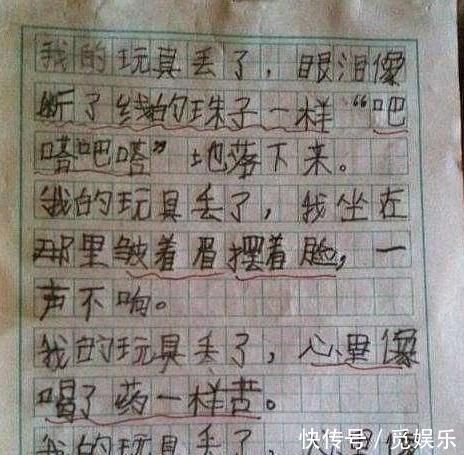 我的玩具丢了，眼泪像
断了线的珠子一样“吧
嗒吧嗒”地落下来。
我的玩具丢了，我坐在
那里皱着眉摆着脸，一
声不响。
我的玩具丢了，心里像
喝了药一样苦。
我的玩具丢了，
快传号/觅娱乐